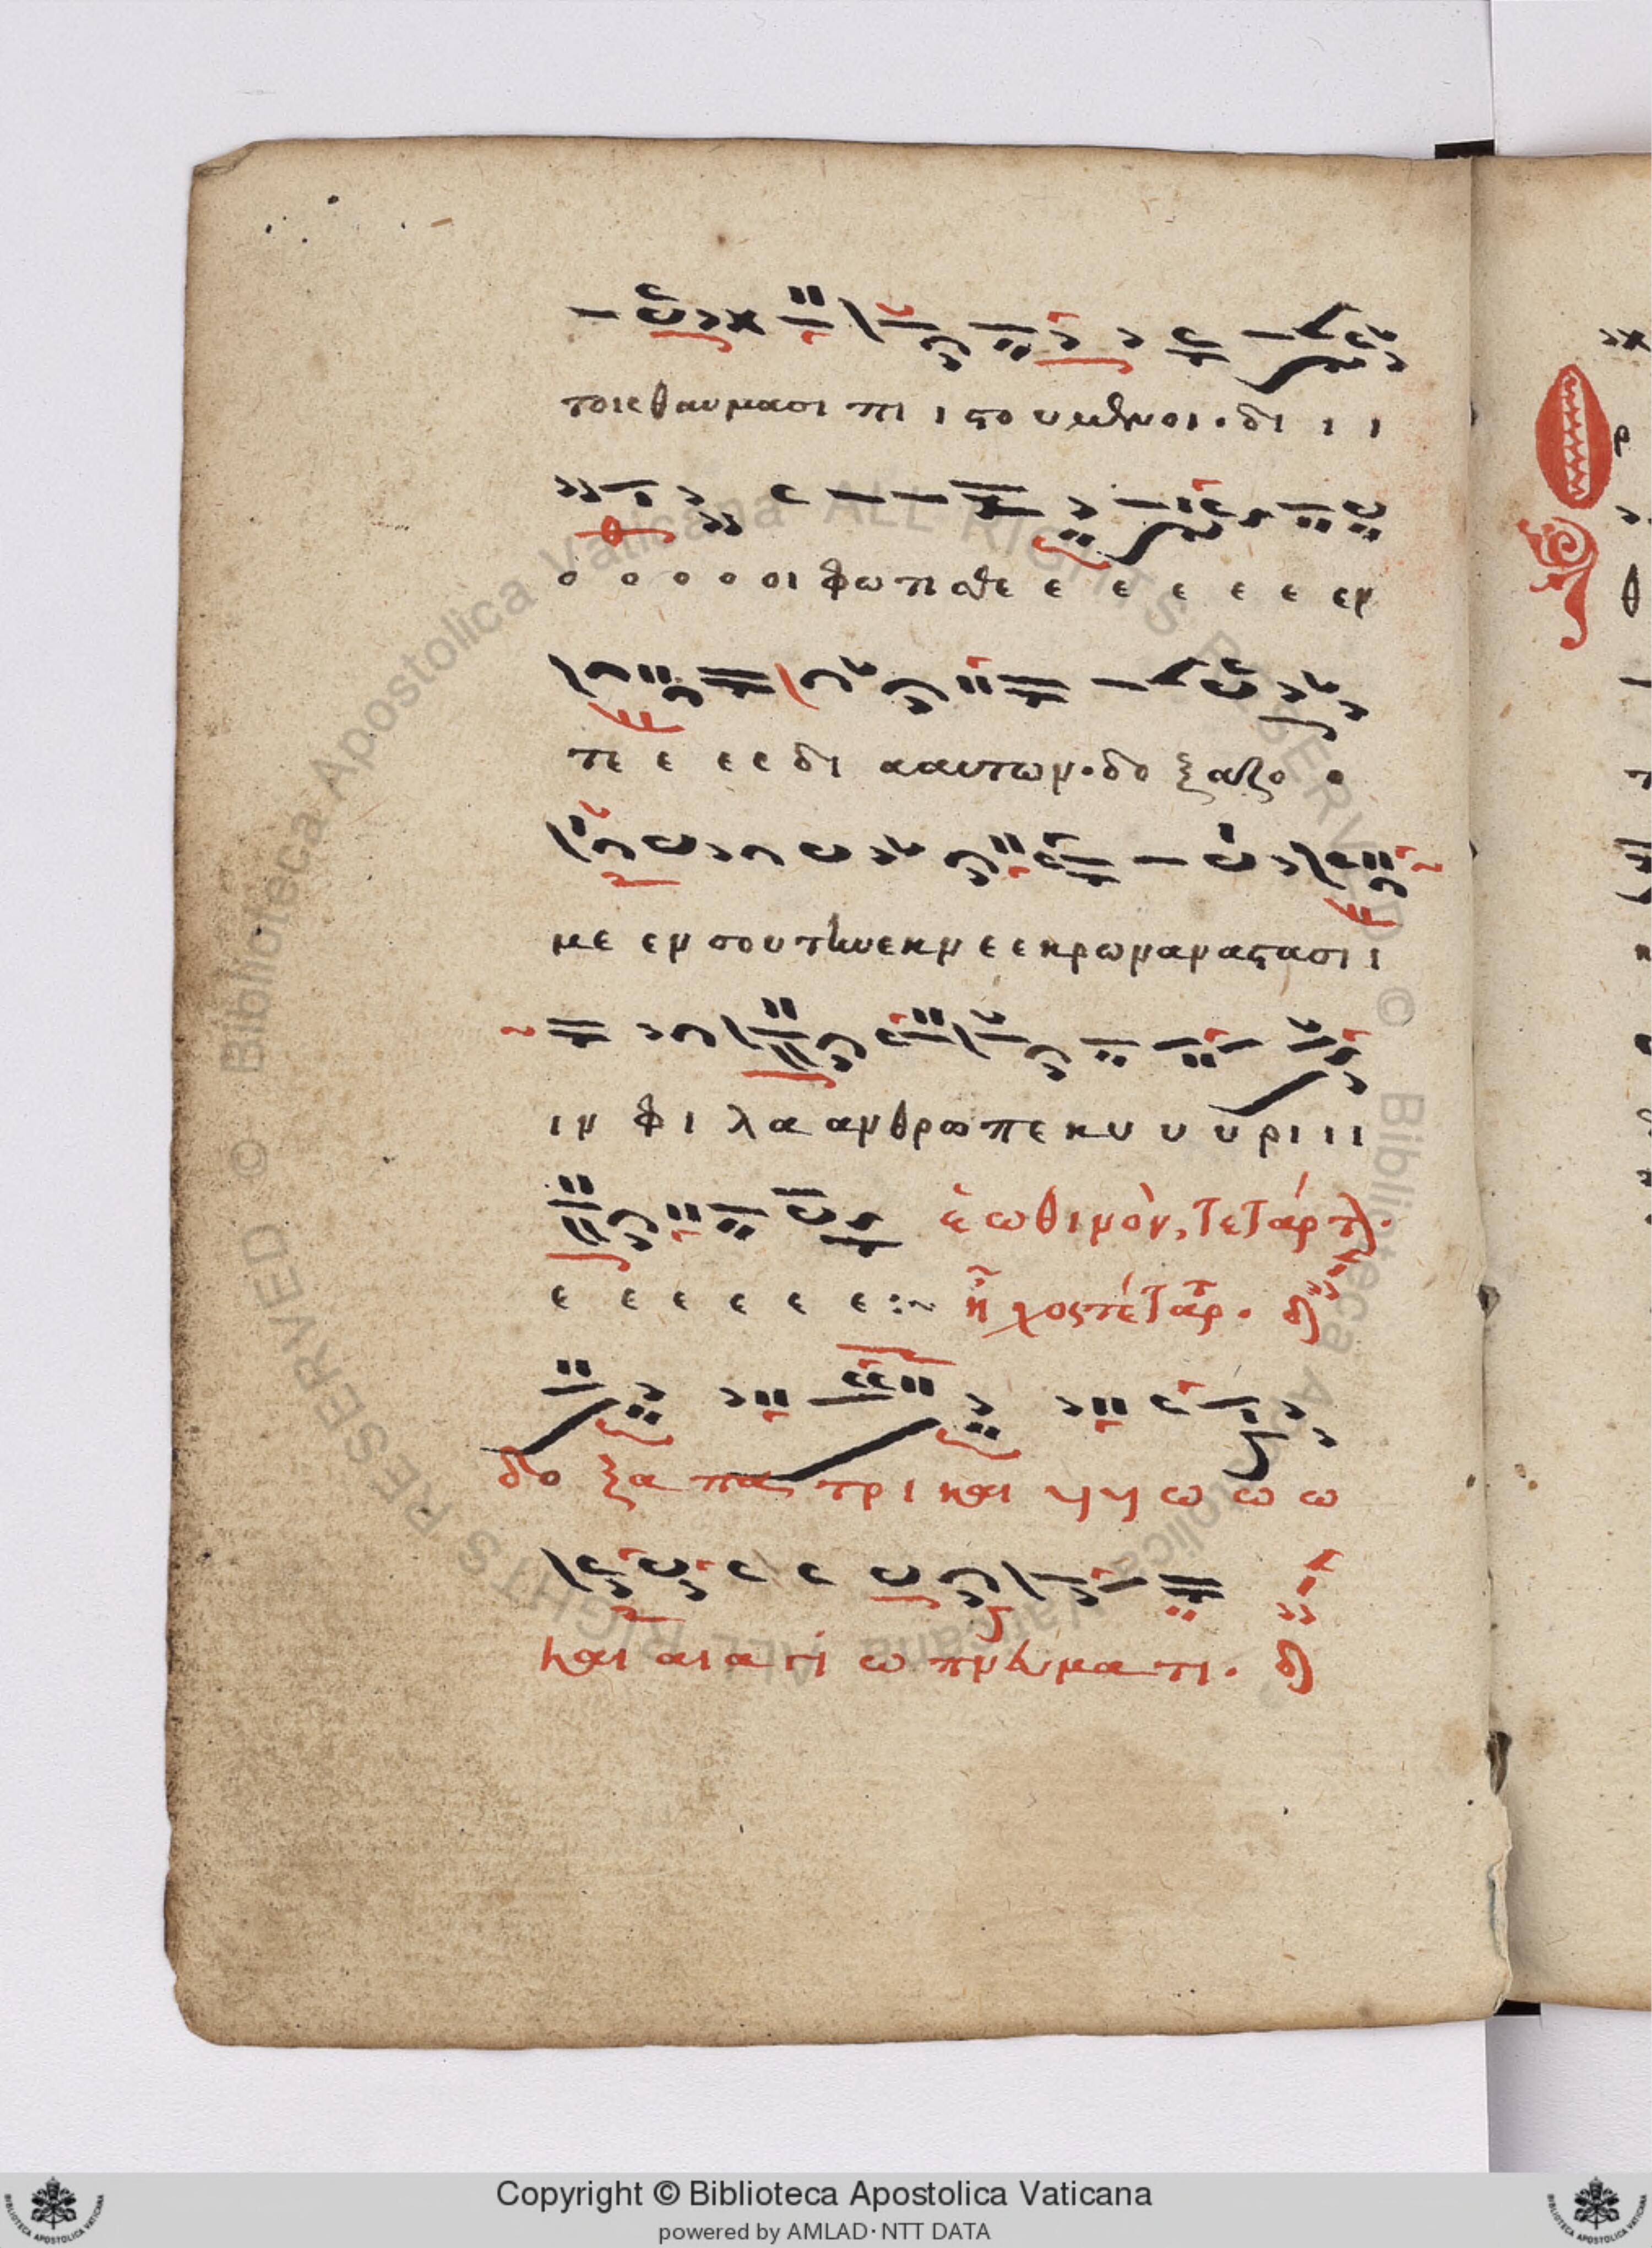 τοιεθαυμασι πι ι στο υμθμοι · δι ι ι
ο ο ο ο οι φω τι σθε ε ε ε ε ε εν
τε ε ε ε δι ααυτων · δο ξαζο ο
με εν σου τὴνεκν ε εκρωναναστασι ι
ιν φι λα ανθρωπε κυ υ υρι ι ι
ἑωθινὸν, τετάρτ
ε ε ε ε ε ε :~ ἦχος τέταρ · δ
δο ξα πα τρι και υιυι ω ω ω
και αι α γι ω πνευματι · δ
© Biblioteca Apostolica Vaticana ALL RIGHTS RESERVED
Copyright © Biblioteca Apostolica Vaticana
powered by AMLAD·NTT DATA